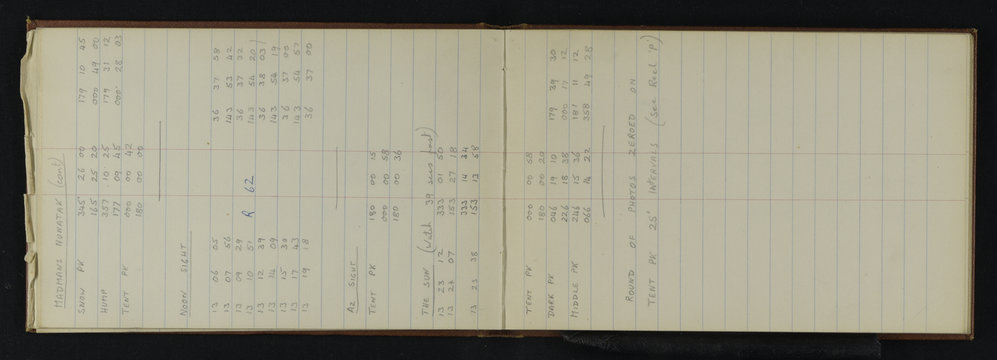 MADMANS NUNATAK (cont)
SNOW PK 345 26 00 179 10 45
165 25 20 000 49 00
HUMP 357 10 25 179 31 12
177 09 45 000 28 03
TENT PK 000 00 42
180 00 00
NOON SIGHT
13 06 05 36 37 58
13 07 56 143 53 42
13 09 29 36 37 22
13 10 51 R 62 143 54 20
13 12 39 36 38 03
13 14 09 143 54 19
13 15 30 36 37 00
13 17 43 143 54 57
13 19 18 36 37 00
AZ SIGHT
TENT PK 180 00 15
000 00 58
180 00 36
THE SUN (Watch 39 secs fast)
13 23 12 333 01 50
13 27 07 153 27 18
333 14 34
13 23 38 153 13 58
TENT PK 000 00 58
180 00 20
DARK PK 046 19 10 179 39 30
226 18 38 000 17 12
MIDDLE PK 246 15 36 181 11 12
066 14 22 358 49 28
ROUND OF PHOTOS ZEROED ON
TENT PK 25° INTERVALS (See Reel 'P')